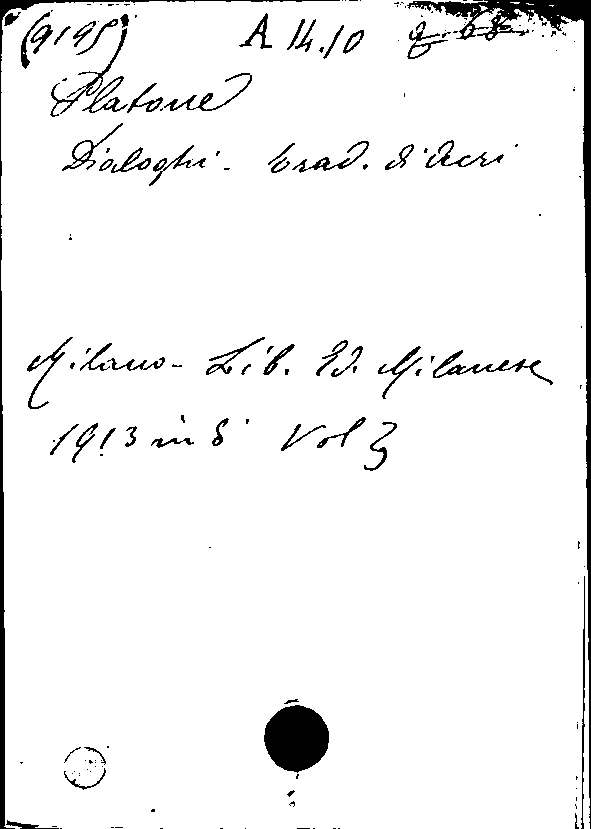 (9195) A 14.10
Platone
Dialoghi - trad. di Acri
Milano - Lib. Ed. Milanese
1913 in 8° Vol 3